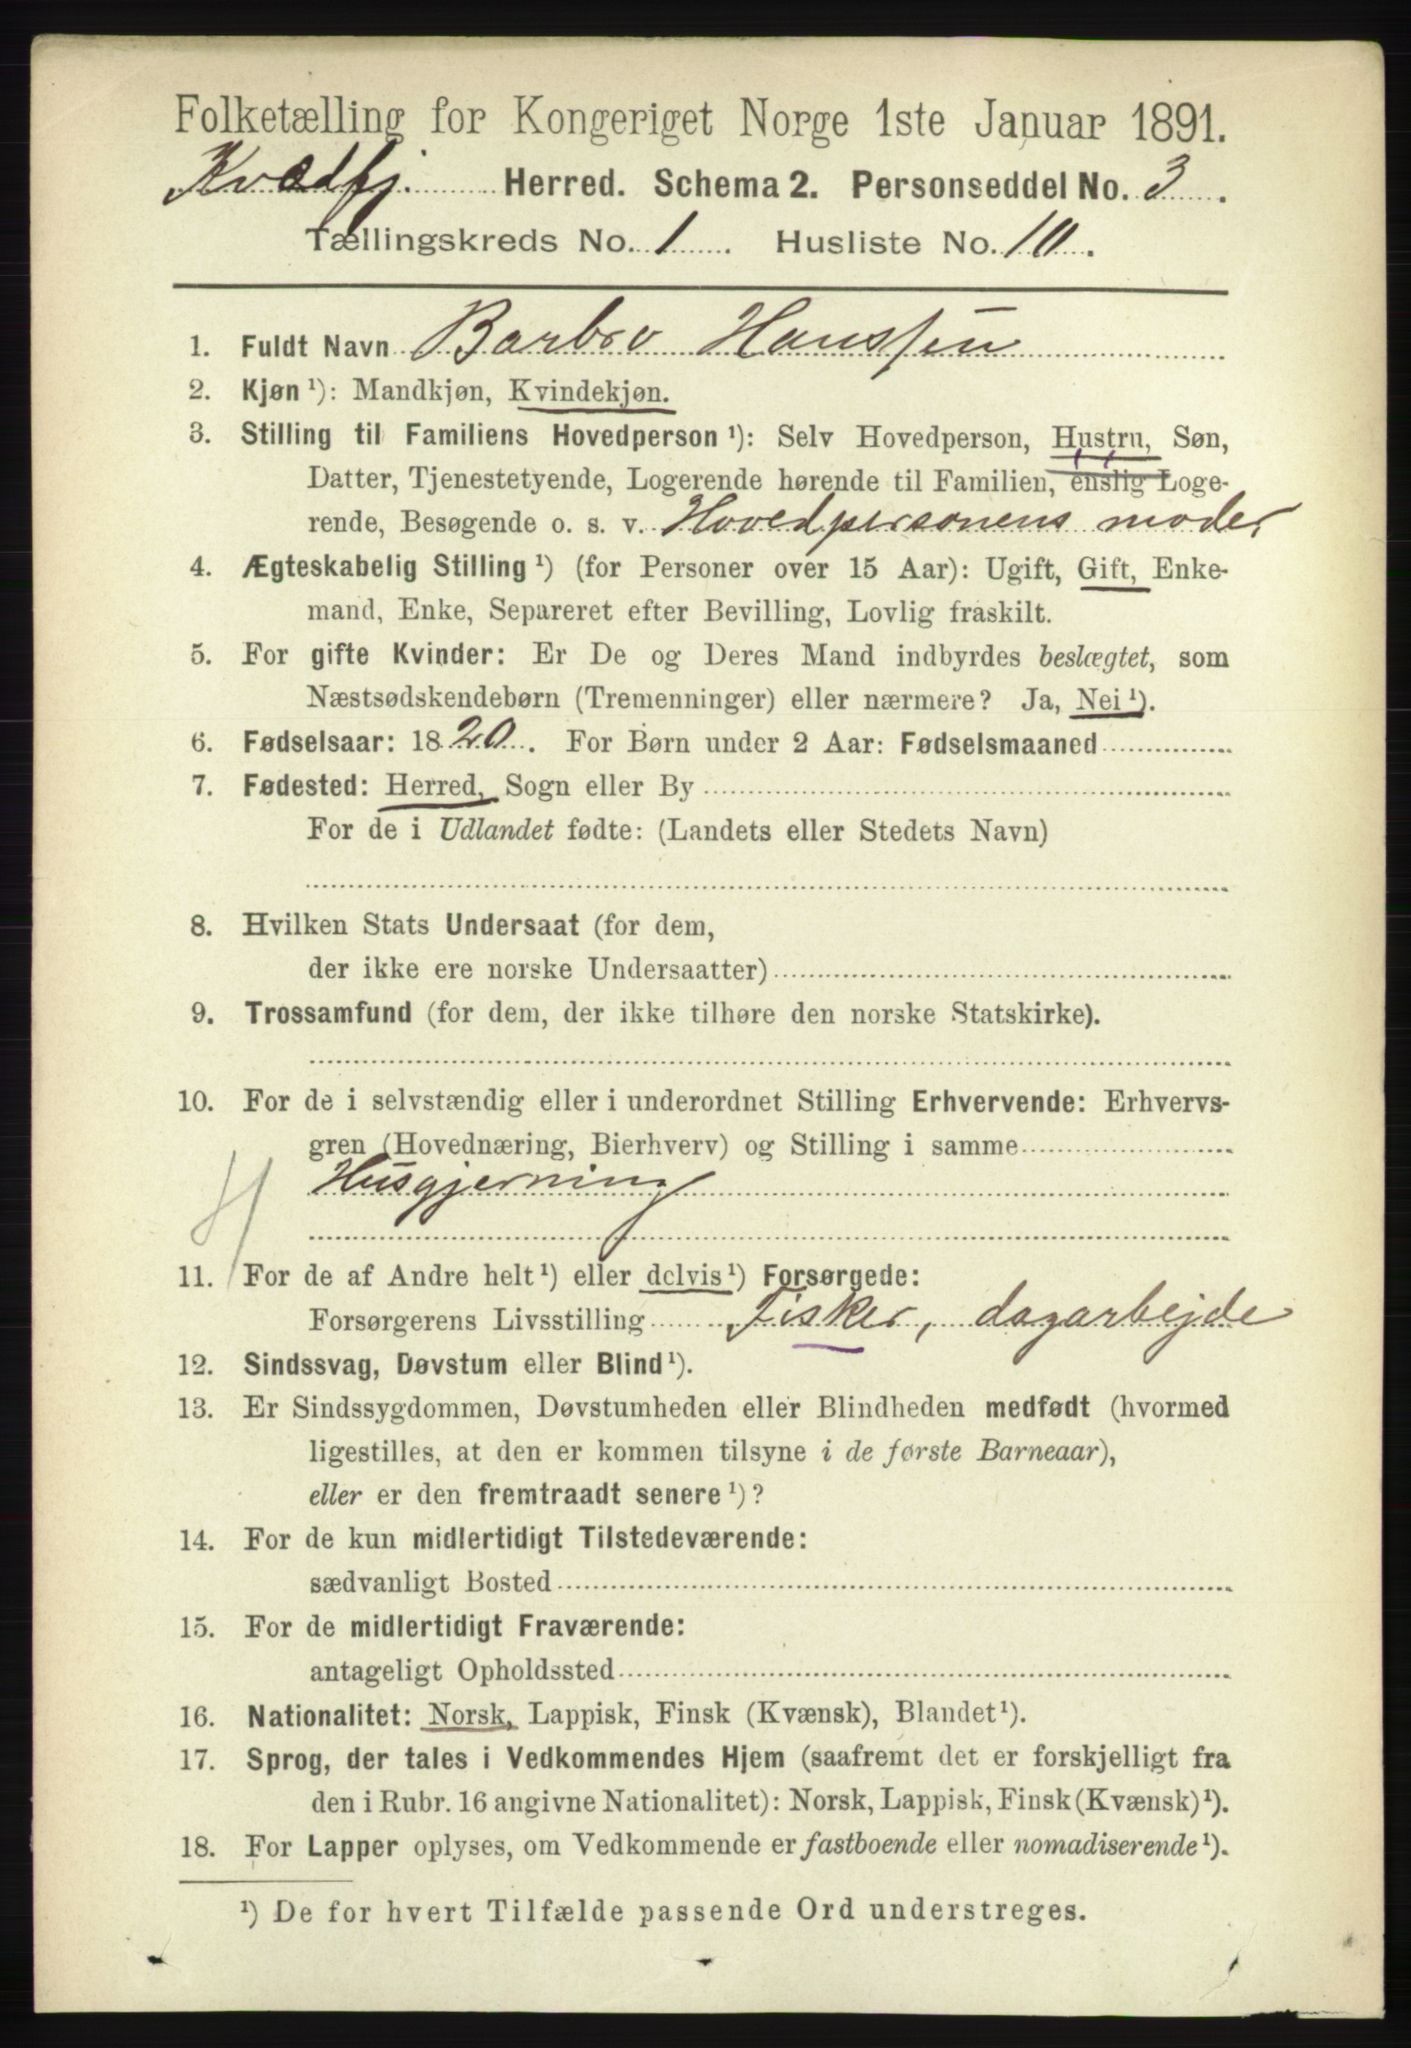 Folketælling for Kongeriget Norge 1ste Januar 1891.
Kvædfj. Herred. Schema 2. Personseddel No. 3.
Tællingskreds No. 1. Husliste No. 10.
1. Fuldt Navn Barbro Hanssen
2. Kjøn ¹): Mandkjøn, Kvindekjøn.
3. Stilling til Familiens Hovedperson ¹): Selv Hovedperson, Hustru, Søn,
Datter, Tjenestetyende, Logerende hørende til Familien, enslig Loge-
rende, Besøgende o. s. v. Hovedpersonens moder
4. Ægteskabelig Stilling ¹) (for Personer over 15 Aar): Ugift, Gift, Enke-
mand, Enke, Separeret efter Bevilling, Lovlig fraskilt.
5. For gifte Kvinder: Er De og Deres Mand indbyrdes beslægtet, som
Næstsødskendebørn (Tremenninger) eller nærmere? Ja, Nei ¹).
6. Fødselsaar: 1820. For Børn under 2 Aar: Fødselsmaaned
7. Fødested: Herred, Sogn eller By
For de i Udlandet fødte: (Landets eller Stedets Navn)
8. Hvilken Stats Undersaat (for dem,
der ikke ere norske Undersaatter)
9. Trossamfund (for dem, der ikke tilhøre den norske Statskirke).
10. For de i selvstændig eller i underordnet Stilling Erhvervende: Erhvervs-
gren (Hovednæring, Bierhverv) og Stilling i samme
H Husgjerning
11. For de af Andre helt ¹) eller delvis ¹) Forsørgede:
Forsørgerens Livsstilling Fisker, dagarbejde
12. Sindssvag, Døvstum eller Blind ¹).
13. Er Sindssygdommen, Døvstumheden eller Blindheden medfødt (hvormed
ligestilles, at den er kommen tilsyne i de første Barneaar),
eller er den fremtraadt senere ¹)?
14. For de kun midlertidigt Tilstedeværende:
sædvanligt Bosted
15. For de midlertidigt Fraværende:
antageligt Opholdssted
16. Nationalitet: Norsk, Lappisk, Finsk (Kvænsk), Blandet ¹).
17. Sprog, der tales i Vedkommendes Hjem (saafremt det er forskjelligt fra
den i Rubr. 16 angivne Nationalitet): Norsk, Lappisk, Finsk (Kvænsk) ¹).
18. For Lapper oplyses, om Vedkommende er fastboende eller nomadiserende ¹).
¹) De for hvert Tilfælde passende Ord understreges.